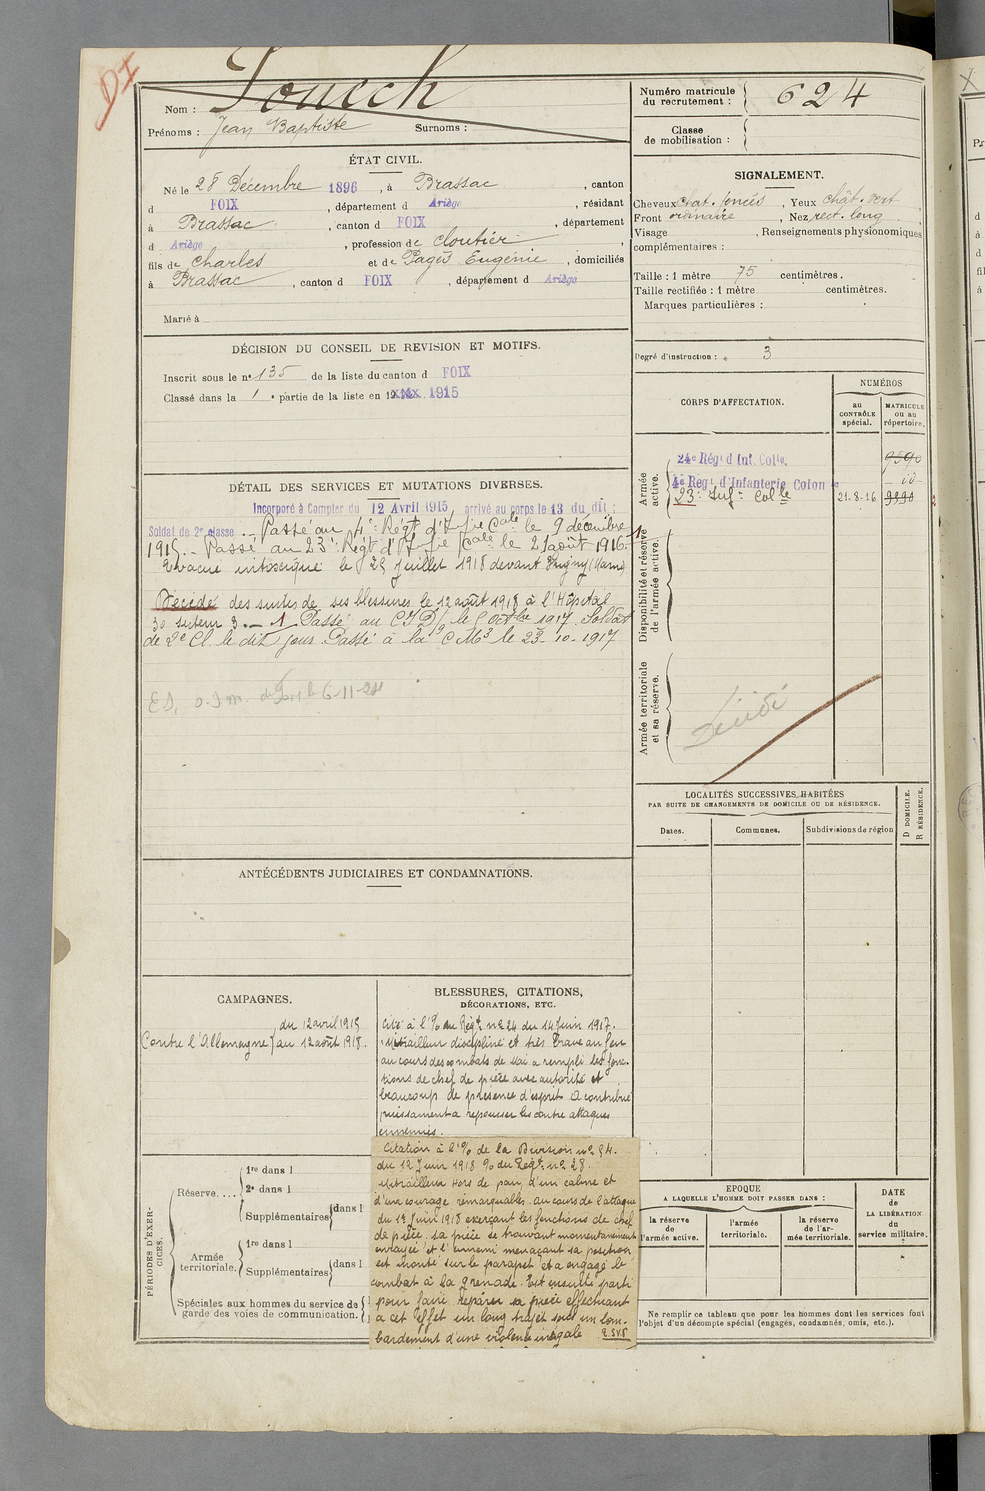 DI
Nom : Fouech
Prénoms : Jean Baptiste Surnoms :
Numéro matricule du recrutement : 624
Classe de mobilisation :
ÉTAT CIVIL.
Né le 28 Décembre 1896, à Brassac, canton
d FOIX, département d Ariège, résidant
à Brassac, canton d FOIX, département
d Ariège, profession de cloutier
fils de Charles et de Pagès Eugénie, domiciliés
à Brassac, canton d FOIX, département d Ariège
Marié à
SIGNALEMENT.
Cheveux chat. foncés, Yeux chât. vert
Front ordinaire, Nez rect. long
Visage , Renseignements physionomiques
complémentaires :
Taille : 1 mètre 75 centimètres.
Taille rectifiée : 1 mètre centimètres.
Marques particulières :
Degré d'instruction : 3
DÉCISION DU CONSEIL DE REVISION ET MOTIFS.
Inscrit sous le n° 135 de la liste du canton d FOIX
Classé dans la 1e partie de la liste en 19 1915
CORPS D'AFFECTATION.
NUMÉROS
au CONTRÔLE spécial.
MATRICULE OU AU répertoire.
Armée active.
24e Régt d'Inf. Colle. 9590
4e Regt d'Infanterie Colon le id
23e Infie Colle 21-8-16 9590
Disponibilité et réserve de l'armée active.
Armée territoriale et sa réserve.
Décédé
DÉTAIL DES SERVICES ET MUTATIONS DIVERSES.
Incorporé à Compter du 12 Avril 1915 arrivé au corps le 13 du dit :
Soldat de 2e classe. Passé au 4e Régt d'Ifie Cale le 9 décembre
1915. Passé au 23e Régt d'Ifie Cale le 21 août 1916.
Evacué intoxiqué le 25 juillet 1918 devant (Marne)
Décédé des suites de ses blessures le 12 août 1918 à l'Hôpital
30 secteur 3. 1 Passé au C.I.D. le 5 octbre 1917. Soldat
de 2e Cl. le dit jour. Passé à la C M3 le 23-10-1917
6-11-24
LOCALITÉS SUCCESSIVES HABITÉES
PAR SUITE DE CHANGEMENTS DE DOMICILE OU DE RÉSIDENCE.
Dates.
Communes.
Subdivisions de région
D DOMICILE.
R RÉSIDENCE.
ANTÉCÉDENTS JUDICIAIRES ET CONDAMNATIONS.
CAMPAGNES.
Contre l'Allemagne du 12 avril 1915
au 12 août 1918.
BLESSURES, CITATIONS,
DÉCORATIONS, ETC.
Cité à l'% du Régt n° 24 du 14 Juin 1917.
Mitrailleur discipliné et très brave au feu
au cours des combats de Mai a rempli les fonc-
tions de chef de pièce avec autorité et
beaucoup de présence d'esprit a contribué
puissament a repousser les contre attaques
ennemies.
Citation à l'% de la Division n° 54.
du 12 Juin 1918 % du Régt n° 28.
Mitrailleur hors de pair, d'un calme et
d'un courage remarquables. au cours de l'attaque
du 1er Juin 1918 exerçant les fonctions de chef
de pièce. sa pièce se trouvant momentanement
enrayée et l'ennemi menaçant sa position
est monté sur le parapet et a engagé le
combat à la grenade. Est ensuite parti
pour faire réparer sa pièce effectuant
à cet effet un long trajet sous un bom-
bardement d'une violence inégale
PÉRIODES D'EXERCICES.
Réserve....
1re dans l
2e dans l
Supplémentaires dans l
Armée territoriale.
1re dans l
Supplémentaires dans l
Spéciales aux hommes du service de
garde des voies de communication.
EPOQUE
A LAQUELLE L'HOMME DOIT PASSER DANS :
la réserve de l'armée active.
l'armée territoriale.
la réserve de l'armée territoriale.
DATE de LA LIBÉRATION du service militaire.
Ne remplir ce tableau que pour les hommes dont les services font
l'objet d'un décompte spécial (engagés, condamnés, omis, etc.).